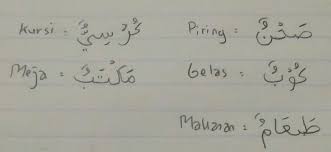 Kursi : كُرْسِيٌّ
Piring : صَحْنٌ
Meja : مَكْتَبٌ
Gelas : كُوْبٌ
Makanan : طَعَامٌ